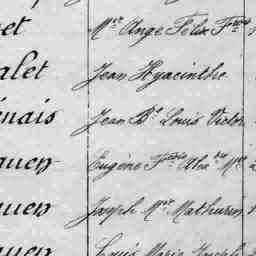 et Mie Ange Félix Fçois
alet Jean Hyacinthe
nais Jean Bte Louis Victor
quen Eugène Fçois Alxdre Mie
quen Joseph Mie Mathurin
quen Louis Marie Joseph